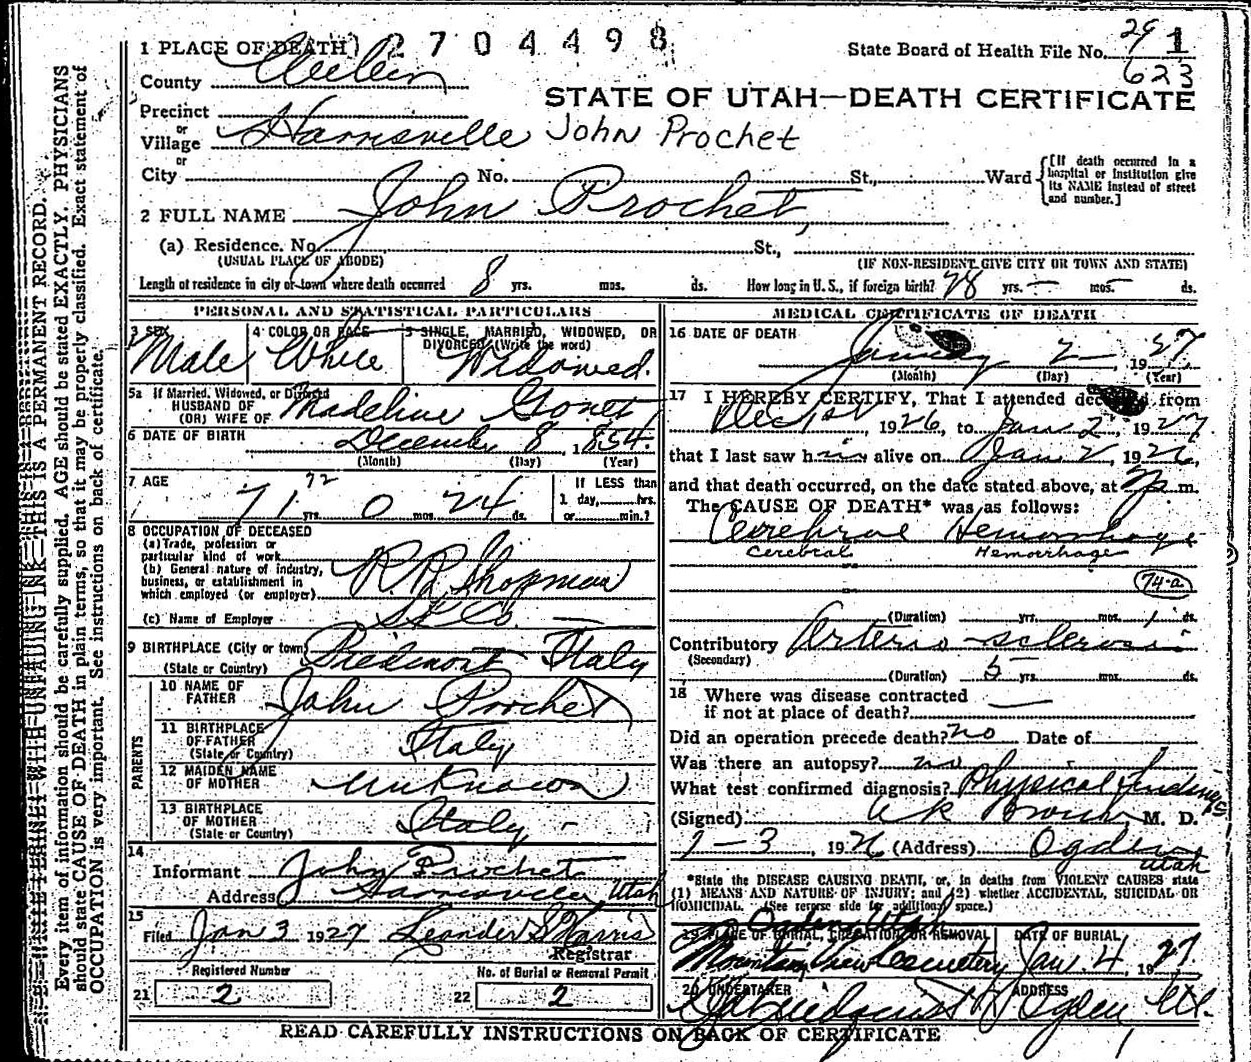 1 PLACE OF DEATH 2704498
State Board of Health File No. 29 1
623
County
STATE OF UTAH—DEATH CERTIFICATE
Precinct
or
Village Harrisville John Prochet
or
City No. St., Ward {[If death occurred in a hospital or institution give its NAME instead of street and number.]
2 FULL NAME John Prochet
(a) Residence. No. St.,
(USUAL PLACE OF ABODE) (IF NON-RESIDENT GIVE CITY OR TOWN AND STATE)
Length of residence in city or town where death occurred 8 yrs. mos. ds. How long in U.S., if foreign birth? 28 yrs. — mos. ds.
PERSONAL AND STATISTICAL PARTICULARS
3 SEX 4 COLOR OR RACE 5 SINGLE, MARRIED, WIDOWED, OR DIVORCED (Write the word)
Male White Widowed.
5a If Married, Widowed, or Divorced
HUSBAND OF
(OR) WIFE OF Madeline Gonet
6 DATE OF BIRTH December 8, 1854.
(Month) (Day) (Year)
7 AGE If LESS than
72
71 yrs. 0 mos. 24 ds. 1 day, hrs.
or min.?
8 OCCUPATION OF DECEASED
(a) Trade, profession or
particular kind of work
(b) General nature of industry,
business, or establishment in
which employed (or employer) R.R. Shopman
(c) Name of Employer
9 BIRTHPLACE (City or town)
(State or Country) Piedmont Italy
PARENTS
10 NAME OF
FATHER John Prochet
11 BIRTHPLACE
OF FATHER
(State or Country) Italy
12 MAIDEN NAME
OF MOTHER Unknown
13 BIRTHPLACE
OF MOTHER
(State or Country) Italy -
14
Informant John Prochet
Address Harrisville, Utah
15
Filed Jan 3 1927 Leander S Harris
Registrar
Registered Number No. of Burial or Removal Permit
21 2 22 2
MEDICAL CERTIFICATE OF DEATH
16 DATE OF DEATH
January 2— 1927
(Month) (Day) (Year)
17 I HEREBY CERTIFY, That I attended deceased from
Dec 1st, 1926, to Jan 2, 1927
that I last saw him alive on Jan 2, 1926,
and that death occurred, on the date stated above, at m.
The CAUSE OF DEATH* was as follows:
Cerebral Hemorrhage
Cerebral Hemorrhage
74-a
(Duration) yrs. mos. 1 ds.
Contributory Arterio-sclerosis
(Secondary)
(Duration) 5 yrs. mos. ds.
18 Where was disease contracted
if not at place of death? —
Did an operation precede death? no Date of
Was there an autopsy? no
What test confirmed diagnosis? Physical findings
(Signed) M. D.
1-3, 1926 (Address) Ogden, Utah
*State the DISEASE CAUSING DEATH, or, in deaths from VIOLENT CAUSES state
(1) MEANS AND NATURE OF INJURY; and (2) whether ACCIDENTAL, SUICIDAL OR
HOMICIDAL. (See reverse side for additional space.)
Ogden, Utah
19 PLACE OF BURIAL, CREMATION OR REMOVAL DATE OF BURIAL
Mountain View Cemetery Jan. 4, 1927
20 UNDERTAKER ADDRESS
Ogden Ut.
READ CAREFULLY INSTRUCTIONS ON BACK OF CERTIFICATE
WRITE PLAINLY WITH UNFADING INK—THIS IS A PERMANENT RECORD.
Every item of information should be carefully supplied. AGE should be stated EXACTLY. PHYSICIANS
should state CAUSE OF DEATH in plain terms, so that it may be properly classified. Exact statement of
OCCUPATION is very important. See instructions on back of certificate.